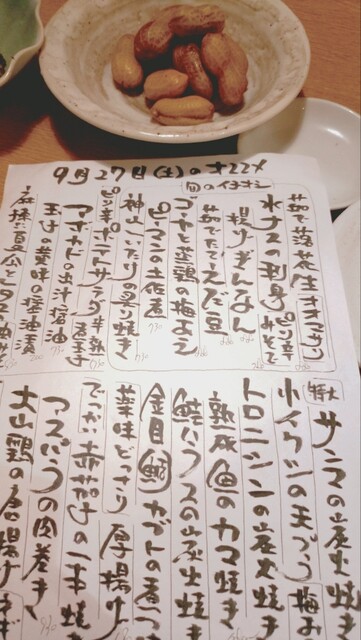 9月27日(土)のオススメ
旬のイチオシ
茹で落花生オオマサリ
水ナスの刺身 ピリ辛みそで
揚げぎんなん
茹でたてえだ豆
ゴーヤと蒸鶏の梅よえ
ピーマンの土佐煮
神山しいたけの炙り焼き
ピリ辛ポテトサラダ 半熟煮玉子
アボカドの出汁醤油
玉ねぎの薬味の醤油漬
特大 サンマの炭火焼き
小イワシの天ぷら 梅み
トロニシンの炭火焼き
熟成魚のカマ焼き
鮭ハラスの炭火焼き
金目鯛カブトの煮つ
薬味どっさり 厚揚げ
でっかい赤茄子の一本焼き
アスパラの肉巻き
大山鶏の唐揚げ ネギ